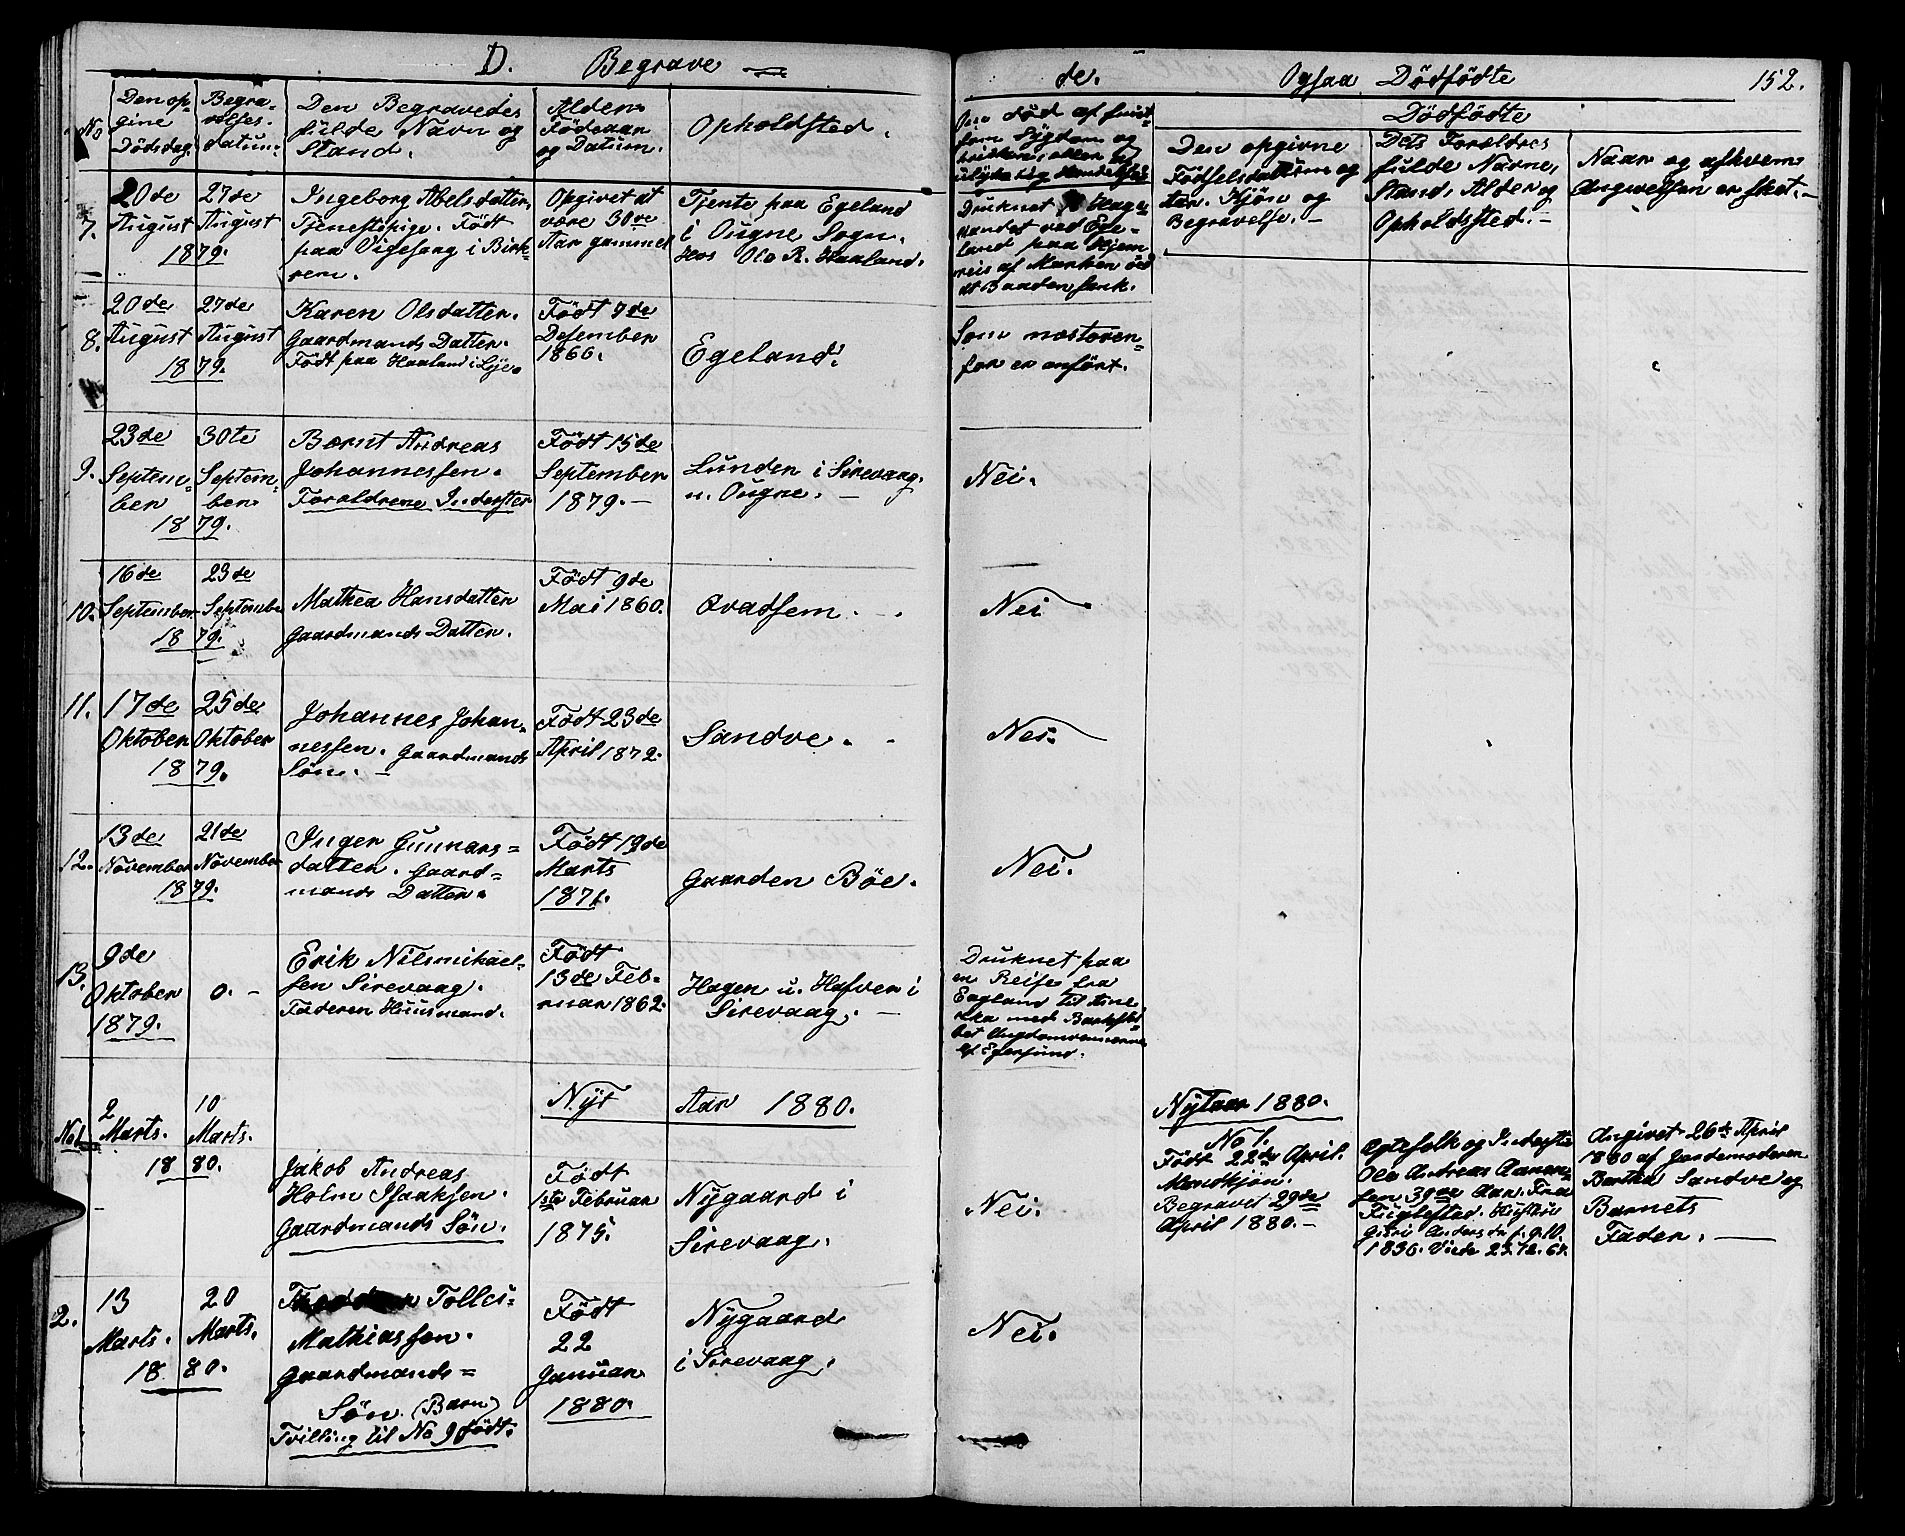 D. Begrave
de. Ogsaa Dödfödte 152.
No
Den op-
givne
Dödsdag.
Begra-
velses.
datum.
Den Begravedes
fulde Navn og
Stand.
Alder
Födeaar
og Datum.
Opholdsted.
död af
som Sygdom og
Dödfödte
Den opgivne
Födselsdatum og
Kjön og
Begravelse. -
Dets Foreldres
fulde Navne,
Stand, Alder og
Opholdsted. -
Naar og afhvem
Angivelsen er sket. -
7.
20de
August
27de
August
1879.
Ingeborg Abelsdatter,
Tjenestepige. Födt
paa Vigesang i Birk-
rem.
Opgivet at
være 30ve
Aar gammel
Tjente paa Egeland
i Ougne Sogn.
Hos Ole R. Haaland.
Druknet
vandet ved Ege-
land paa Hjem
reis af Marken
at Baaden sank.
8.
20de
August
27de
August
1879.
Karen Olsdatter.
Gaardmands Datter.
Födt paa Haaland i Lye.
Födt 7de
Desember
1866.
Egeland.
Som næstoven-
for er anfört.
9.
23de
Septem-
ber
30te
Septem-
ber
1879.
Bernt Andreas
Johannessen.
Foraldrene Inderster
Födt 15de
September
1879. -
Lunden i Sirevaag.
u. Ougne. -
Nei.
10.
16de
September
23de
Septembe
1879.
Mathea Hansdatter
Gaardmands Datter.
Födt 9de
Mai 1860.
Qvadsem.
Nei
11.
17de
Oktober
25de
Oktober
1879.
Johannes Johan-
nessen. Gaardmands
Sön. -
Födt 23de
April 1872.
Sandve.
Nei.
12.
13de
November
21de
November
1879.
Inger Gunnars=
datter. Gaard=
mands Datter.
Födt 19de
Marts
1871.
Gaarden Böe.
Nei.
13.
9de
Oktober
1879.
0. -
Erik Nilsmikael-
sen Sirevaag.
Faderen Huusmand.
Födt
13de Feb-
ruar 1862.
Hagen u. Hafven i
Sirevaag. -
Druknet paa
en Reise fra
England til Ame
rika med Barkski
bet
af Egersund.
Nyt Aar 1880.
No 1
2
Marts.
10
Marts.
1880.
Jakob Andreas
Holm Isaaksen.
Gaardmands Sön.
Födt
1ste Februar
1875.
Nygaard i
Sirevaag.
Nei.
Nytaar 1880.
No 1.
Födt 22de April.
Mandkjön.
Begravet 29de
April 1880. -
Ægtefolk og Inderste
Ole Andreas Aanen-
sen 39ve Aar. Fra
Fuglestad. Hustru
Guri Andersdr f. 9.10.
1836. Viede 23.12.61.
Angivet 26de April
1880 af Jordemoderen
Bertha Sandve og
Barnets
Fader. -
2.
13
Marts.
20
Marts.
1880.
Tollei-
Mathiassen.
Gaardmands=
Sön (Barn)
Tvilling til No 9 födt.
Födt
22
Januar
1880.
Nygaard
i Sirevaag.
Nei.